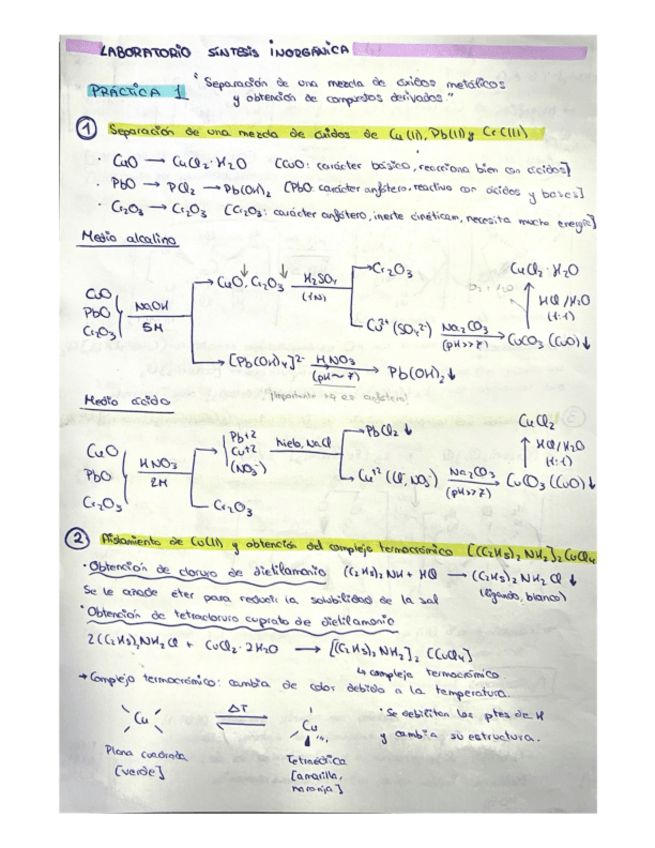 LABORATORIO SÍNTESIS INORGÁNICA
PRÁCTICA 1
"Separación de una mezcla de óxidos metálicos
y obtención de compuestos derivados."
① Separación de una mezcla de óxidos de Cu(II), Pb(II) y Cr(III)
· CuO → CuCl₂·H₂O [CuO: carácter básico, reacciona bien con ácidos]
· PbO → PCl₂ → Pb(OH)₂ [PbO: carácter anfótero, reactivo con ácidos y bases]
· Cr₂O₃ → Cr₂O₃ [Cr₂O₃: carácter anfótero, inerte cinéticam, necesita mucha energía]
Medio alcalino
CuO
PbO
Cr₂O₃
NaOH
5M
CuO↓, Cr₂O₃↓
H₂SO₄
(1N)
Cr₂O₃
Cu²⁺ (SO₄²⁻)
Na₂CO₃
(pH>>7)
CuCO₃ (CuO)↓
HCl/H₂O
(1:1)
CuCl₂·H₂O
[Pb(OH)₄]²⁻
HNO₃
(pH~7)
Pb(OH)₂↓
¡Importante xq es anfótero!
Medio ácido
CuO
PbO
Cr₂O₃
HNO₃
2M
Pb+2
Cu+2
(NO₃⁻)
Cr₂O₃
hielo, NaCl
PbCl₂↓
Cu⁺² (Cl⁻, NO₃⁻)
Na₂CO₃
(pH>>7)
CuCO₃ (CuO)↓
HCl/H₂O
(1:1)
CuCl₂
② Aislamiento de Cu(II) y obtención del complejo termocrómico [(C₂H₅)₂NH₂]₂CuCl₄
· Obtención de cloruro de dietilamonio (C₂H₅)₂NH + HCl → (C₂H₅)₂NH₂Cl↓
Se le añade éter para reducir la solubilidad de la sal (ligando, blanco)
· Obtención de tetracloruro cuprato de dietilamonio
2(C₂H₅)₂NH₂Cl + CuCl₂·2H₂O → [(C₂H₅)₂NH₂]₂[CuCl₄]
↳ complejo termocrómico.
→ Complejo termocrómico: cambia de color debido a la temperatura.
Cu
ΔT
Cu
· Se debilitan los ptes de H
y cambia su estructura.
Plana cuadrada
[verde]
Tetraédrica
[amarilla,
naranja]